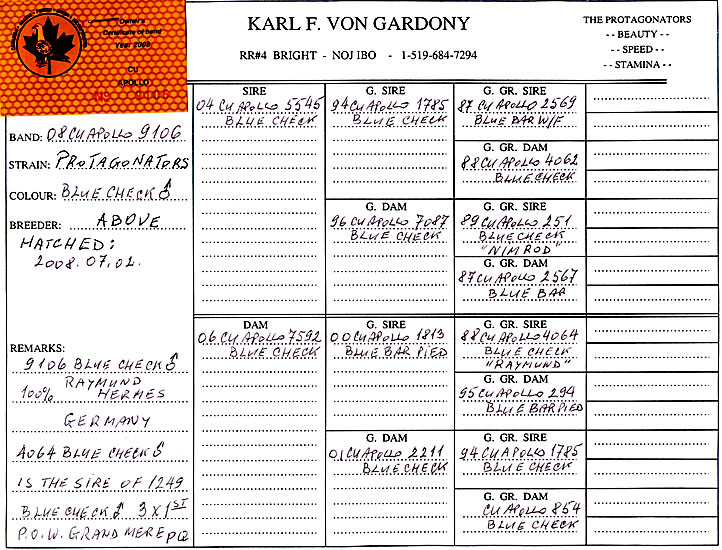 Owner's
Certificate of band
Year 2008
CU
APOLLO
No
KARL F. VON GARDONY
RR#4 BRIGHT - NOJ IBO - 1-519-684-7294
THE PROTAGONATORS
- - BEAUTY - -
- - SPEED - -
- - STAMINA - -
BAND: 08 CU APOLLO 9106
STRAIN: PROTAGONATORS
COLOUR: BLUE CHECK ♂
BREEDER: ABOVE
HATCHED:
2008.07.02.
REMARKS:
9106 BLUE CHECK ♂
RAYMUND
100% HERMES
GERMANY
4064 BLUE CHECK ♂
IS THE SIRE OF 1249
BLUE CHECK ♂ 3 X 1ST
P.O.W. GRANDMERE PQ
SIRE
04 CU APOLLO 5545
BLUE CHECK
DAM
06 CU APOLLO 7592
BLUE CHECK
G. SIRE
94 CU APOLLO 1785
BLUE CHECK
G. DAM
96 CU APOLLO 7087
BLUE CHECK
G. SIRE
00 CU APOLLO 1813
BLUE BAR PIED
G. DAM
01 CU APOLLO 2211
BLUE CHECK
G. GR. SIRE
87 CU APOLLO 2569
BLUE BAR W/F
G. GR. DAM
88 CU APOLLO 4062
BLUE CHECK
G. GR. SIRE
89 CU APOLLO 251
BLUE CHECK
"NIMROD"
G. GR. DAM
87 CU APOLLO 2567
BLUE BAR
G. GR. SIRE
88 CU APOLLO 4064
BLUE CHECK
"RAYMUND"
G. GR. DAM
95 CU APOLLO 294
BLUE BAR PIED
G. GR. SIRE
94 CU APOLLO 1785
BLUE CHECK
G. GR. DAM
CU APOLLO 854
BLUE CHECK